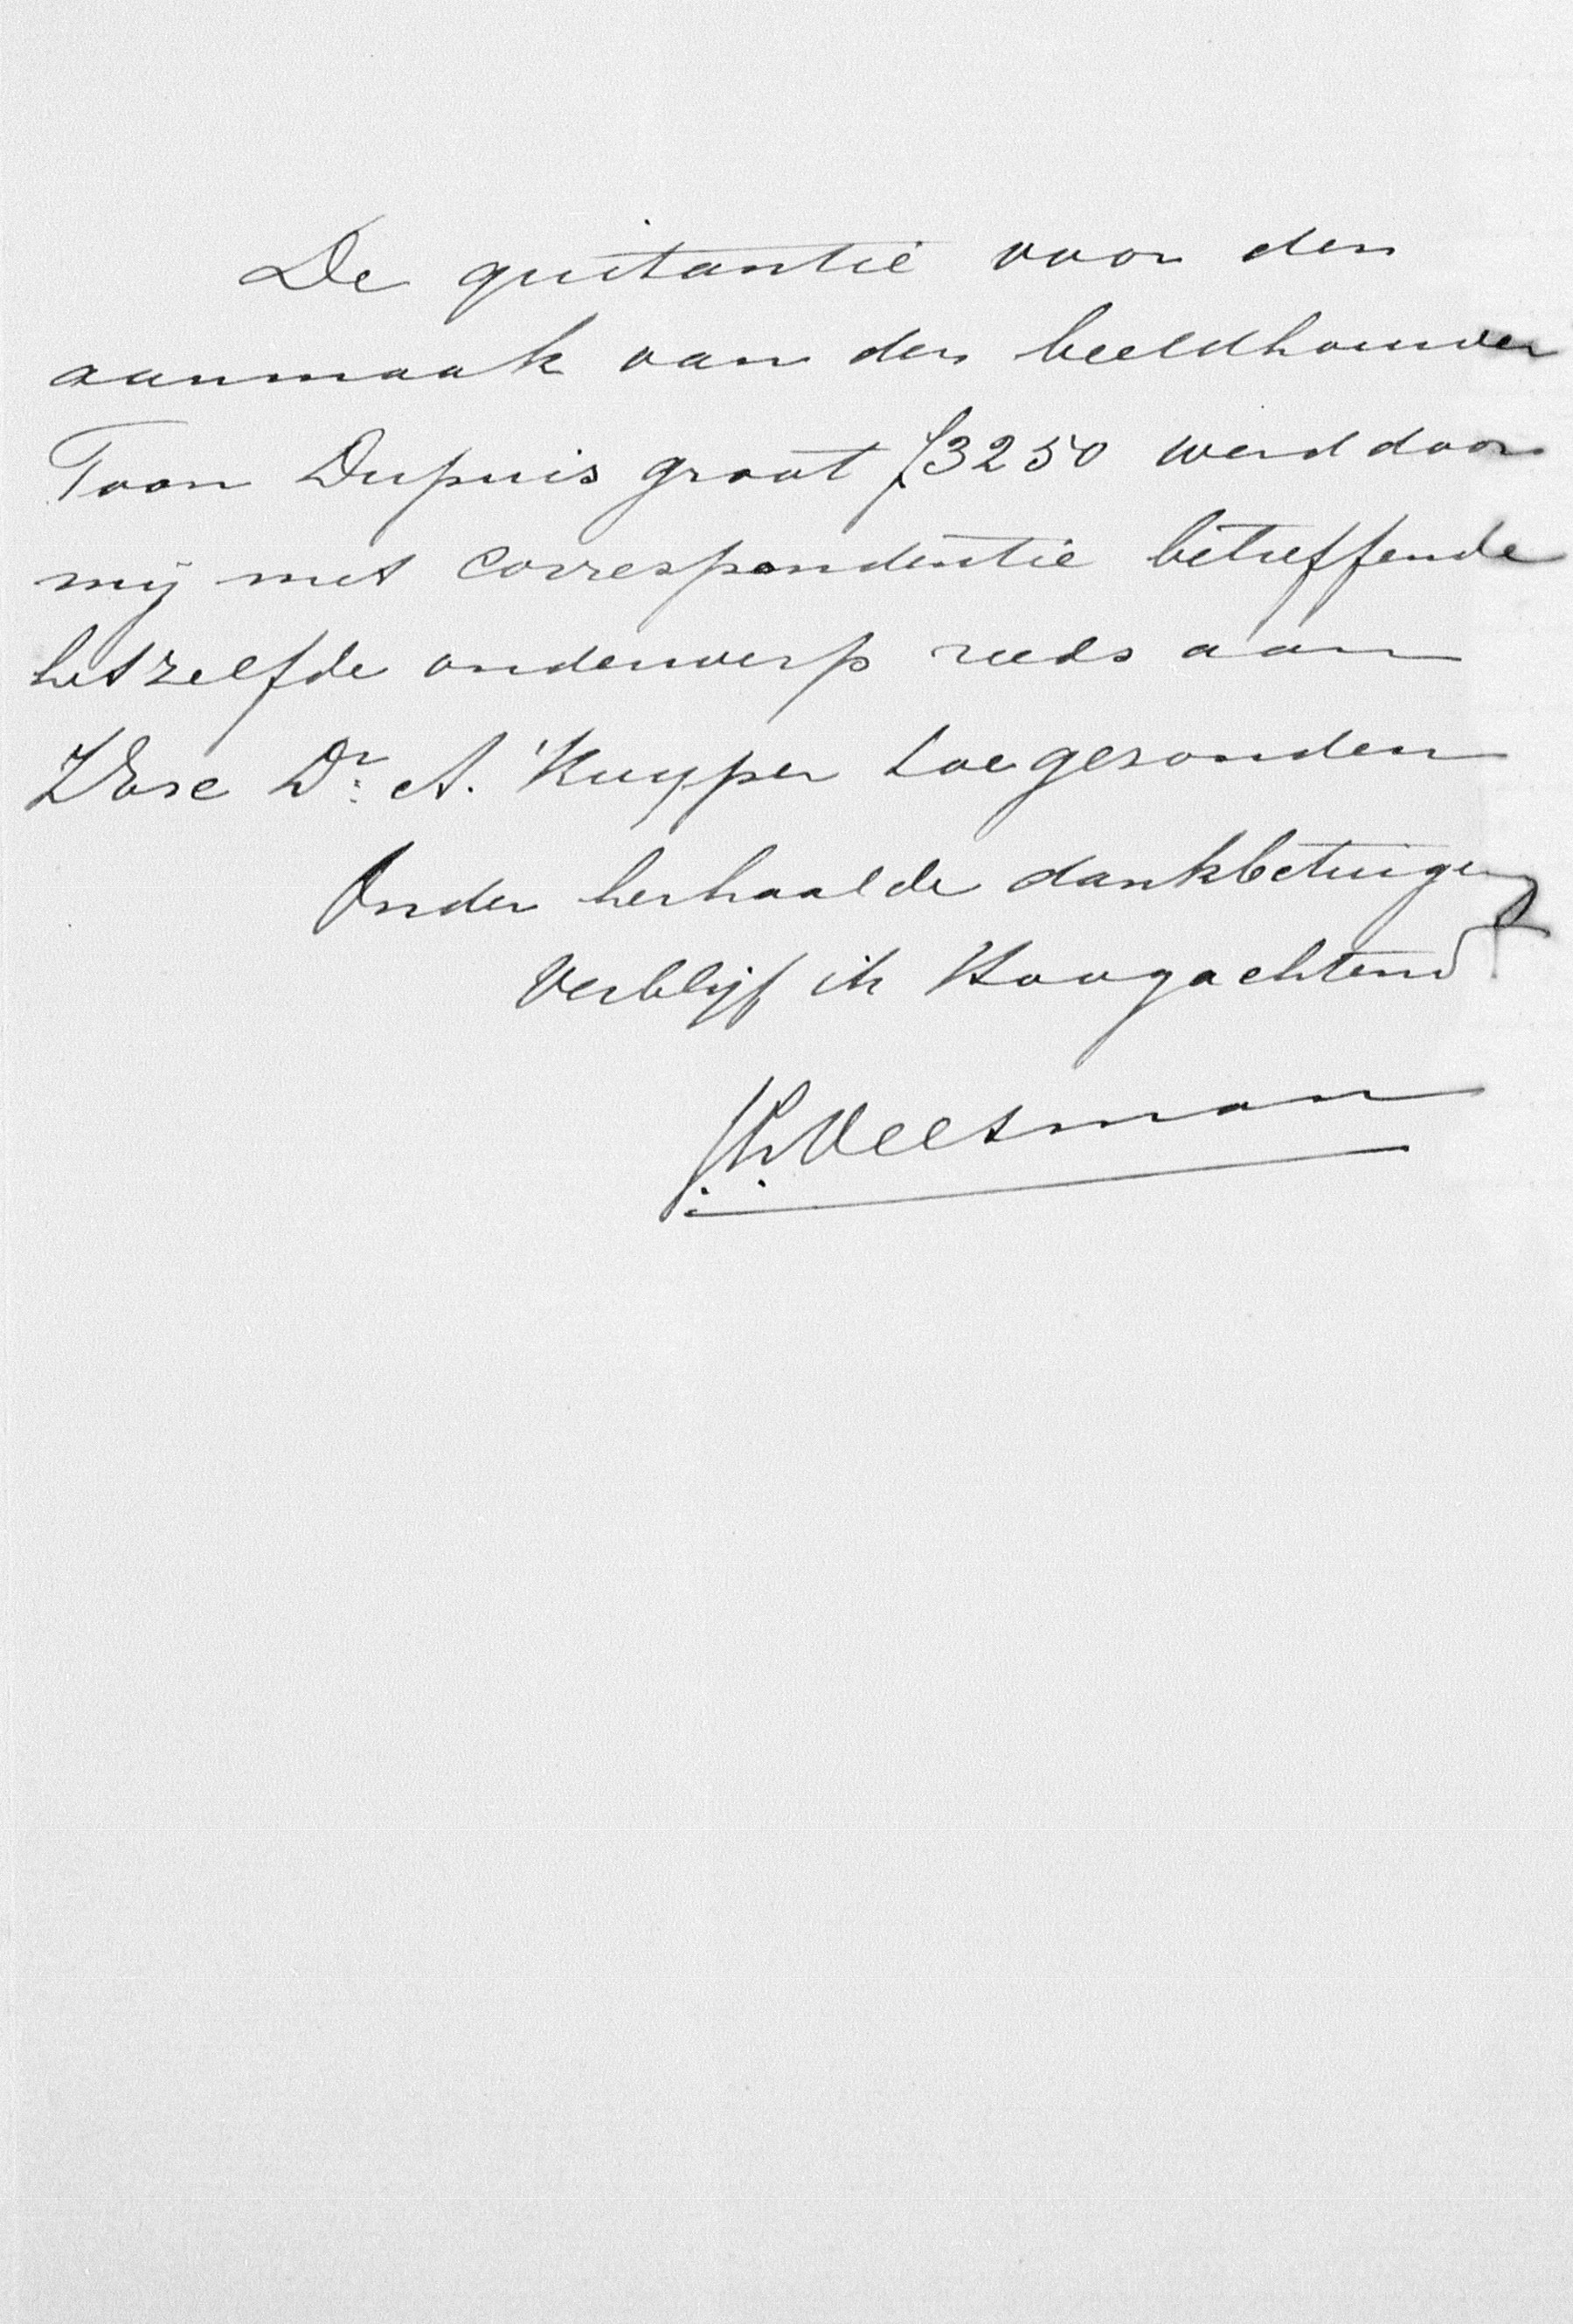 De quitantie voor den
aanmaak van den beeldhouwer
Toon Dupuis groot ƒ3250 werd door
mij met correspondentie betreffende
hetzelfde onderwerp reeds aan
ZExc Dr. A. Kuyper toegezonden
Onder herhaalde dankbetuiging
Verblijf ik Hoogachtend
Veltman